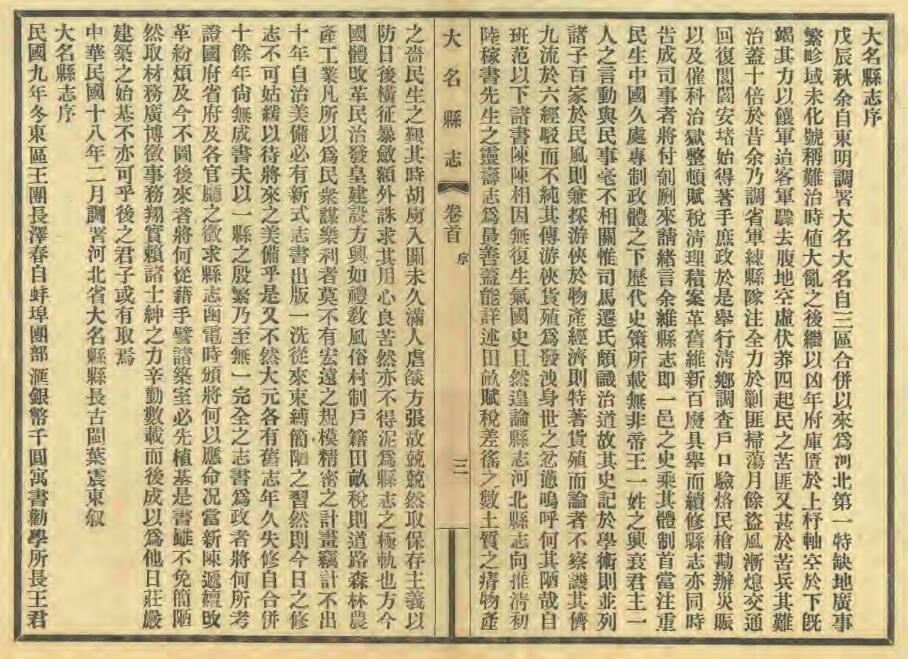 大名縣志序
戊辰秋余自東明調署大名大名自三區合併以來爲河北第一特缺地廣事
繁畛域未化號稱難治時値大亂之後繼以凶年府庫匱於上杼軸空於下旣
竭其力以饟軍迨客軍驟去腹地空虛伏莽四起民之苦匪又甚於苦兵其難
治蓋十倍於昔余乃調省軍練縣隊注全力於剿匪掃蕩月餘盜風漸熄交通
回復閭閻安堵始得著手庶政於是舉行淸鄉調查戶口驗烙民槍勘辦災賑
以及催科治獄整頓賦稅淸理積案革舊維新百廢具舉而續修縣志亦同時
告成司事者將付剞劂來請緒言余維縣志卽一邑之史乘其體制首當注重
民生中國久處專制政體之下歷代史策所載無非帝王一姓之興衰君主一
人之言動與民事毫不相關惟司馬遷氏頗識治道故其史記於學術則並列
諸子百家於民風則兼採游俠於物產經濟則特著貨殖而論者不察譏其儕
九流於六經駁而不純其傳游俠貨殖爲發洩身世之忿懣嗚呼何其陋哉自
班范以下諸書陳陳相因無復生氣國史且然遑論縣志河北縣志向推淸初
陸稼書先生之靈壽志爲最善蓋能詳述田畝賦稅差徭之數土質之瘠物產
大名縣志 卷首 序 三
之嗇民生之艱其時胡虜入關未久滿人虐燄方張故兢兢然取保存主義以
防日後橫征暴斂額外誅求其用心良苦然亦不得泥爲縣志之極軌也方今
國體攺革民治發皇建設方興如禮敎風俗村制戶籍田畝稅則道路森林農
產工業凡所以爲民衆謀樂利者莫不有宏遠之規模精密之計畫竊計不出
十年自治美備必有新式志書出版一洗從來束縛簡陋之習然則今日之修
志不可姑緩以待將來之美備乎是又不然大元各有舊志年久失修自合併
十餘年尙無成書夫以一縣之殷繁乃至無一完全之志書爲政者將何所考
證國府省府及各官廳之徵求縣志函電時頒將何以應命况當新陳遞嬗攺
革紛煩及今不圖後來者將何從藉手譬諸築室必先植基是書雖不免簡陋
然取材務廣博徵事務翔實賴諸士紳之力辛勤數載而後成以爲他日莊嚴
建築之始基不亦可乎後之君子或有取焉
中華民國十八年二月調署河北省大名縣縣長古閩葉震東叙
大名縣志序
民國九年冬東區王團長澤春自蚌埠團部滙銀幣千圓寓書勸學所長王君